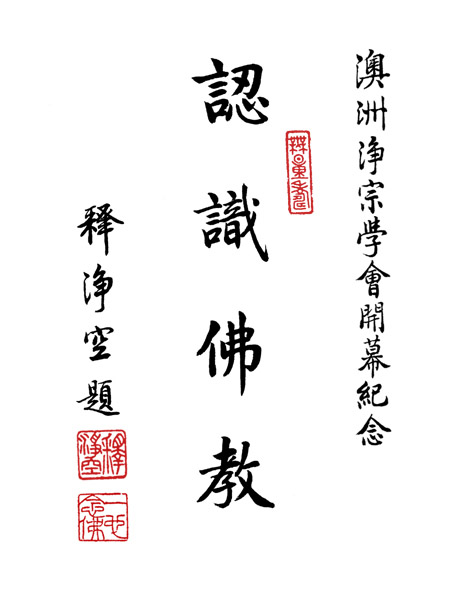 澳洲淨宗學會開幕紀念
認識佛教
釋淨空題
釋淨空
一心念佛